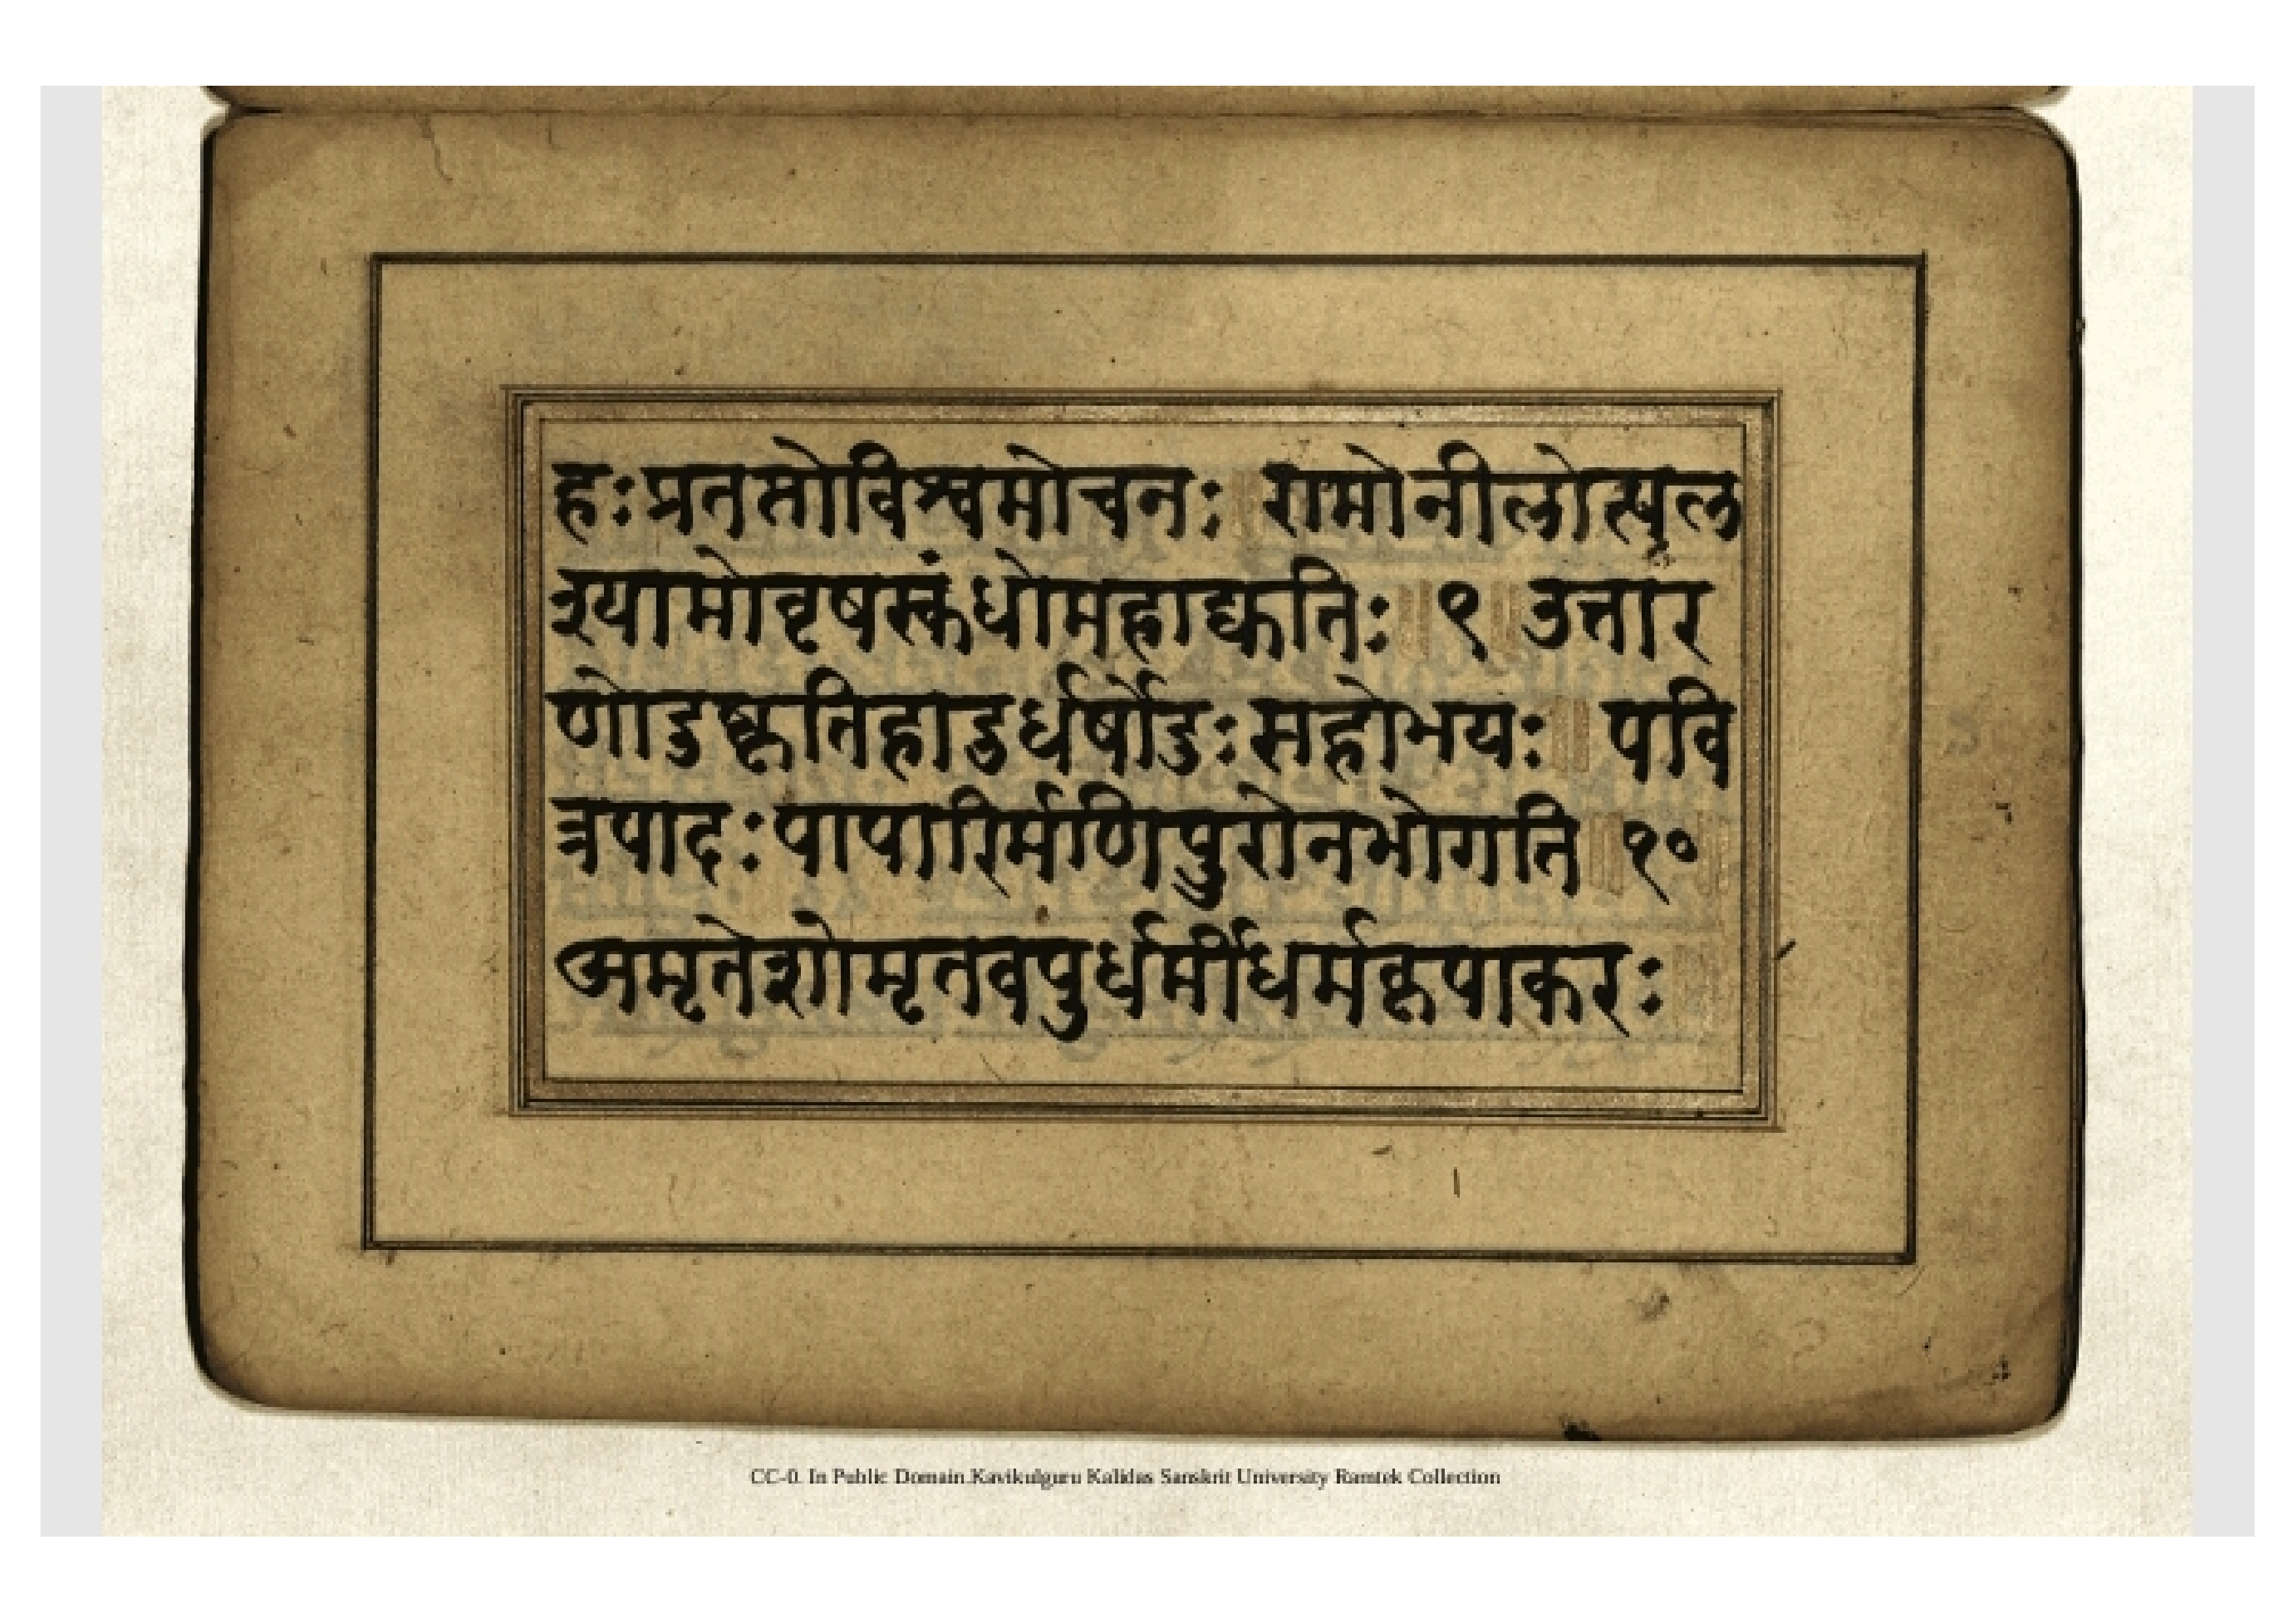 हःप्रनतोविश्वमोचनः ॥ रामोनीलोत्पल
श्यामोवृषस्कंधोमहाद्युतिः ॥ ९ ॥ उत्तार
णोदुष्कृतिहादुर्धर्षोदुःसहोभयः ॥ पवि
त्रपादःपापारिर्मणिपुरोनभोगति ॥ १० ॥
अमृतेशोमृतवपुर्धर्मीधर्मकृपाकरः ॥
CC-0. In Public Domain.Kavikulguru Kalidas Sanskrit University Ramtek Collection